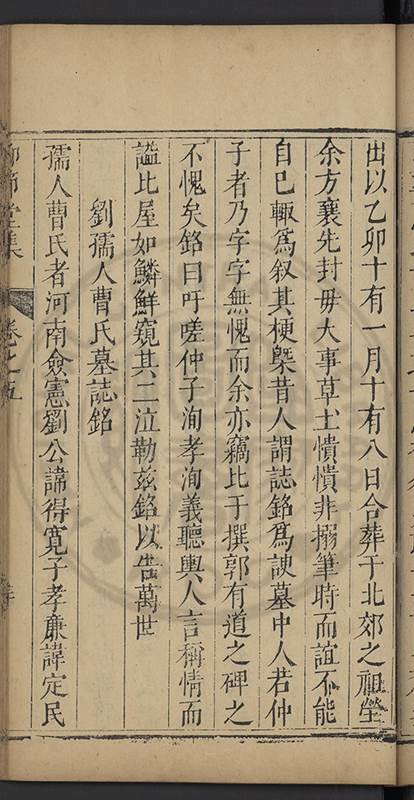 出以乙卯十有一月十有八日合葬于北郊之祖塋
余方襄先封毋大事草土憒憒非搦筆時而誼不能
自已輙爲叙其梗槩昔人謂誌銘爲諛墓中人若仲
子者乃字字無愧而余亦竊比于撰郭有道之碑之
不愧矣銘曰吁嗟仲子洵孝洵義聽輿人言稱情而
謚比屋如鱗鮮窺其二泣勒兹銘以告萬世
劉孺人曹氏墓誌銘
孺人曹氏者河南僉憲劉公諱得寛子孝亷諱定民
堂集
卷之五